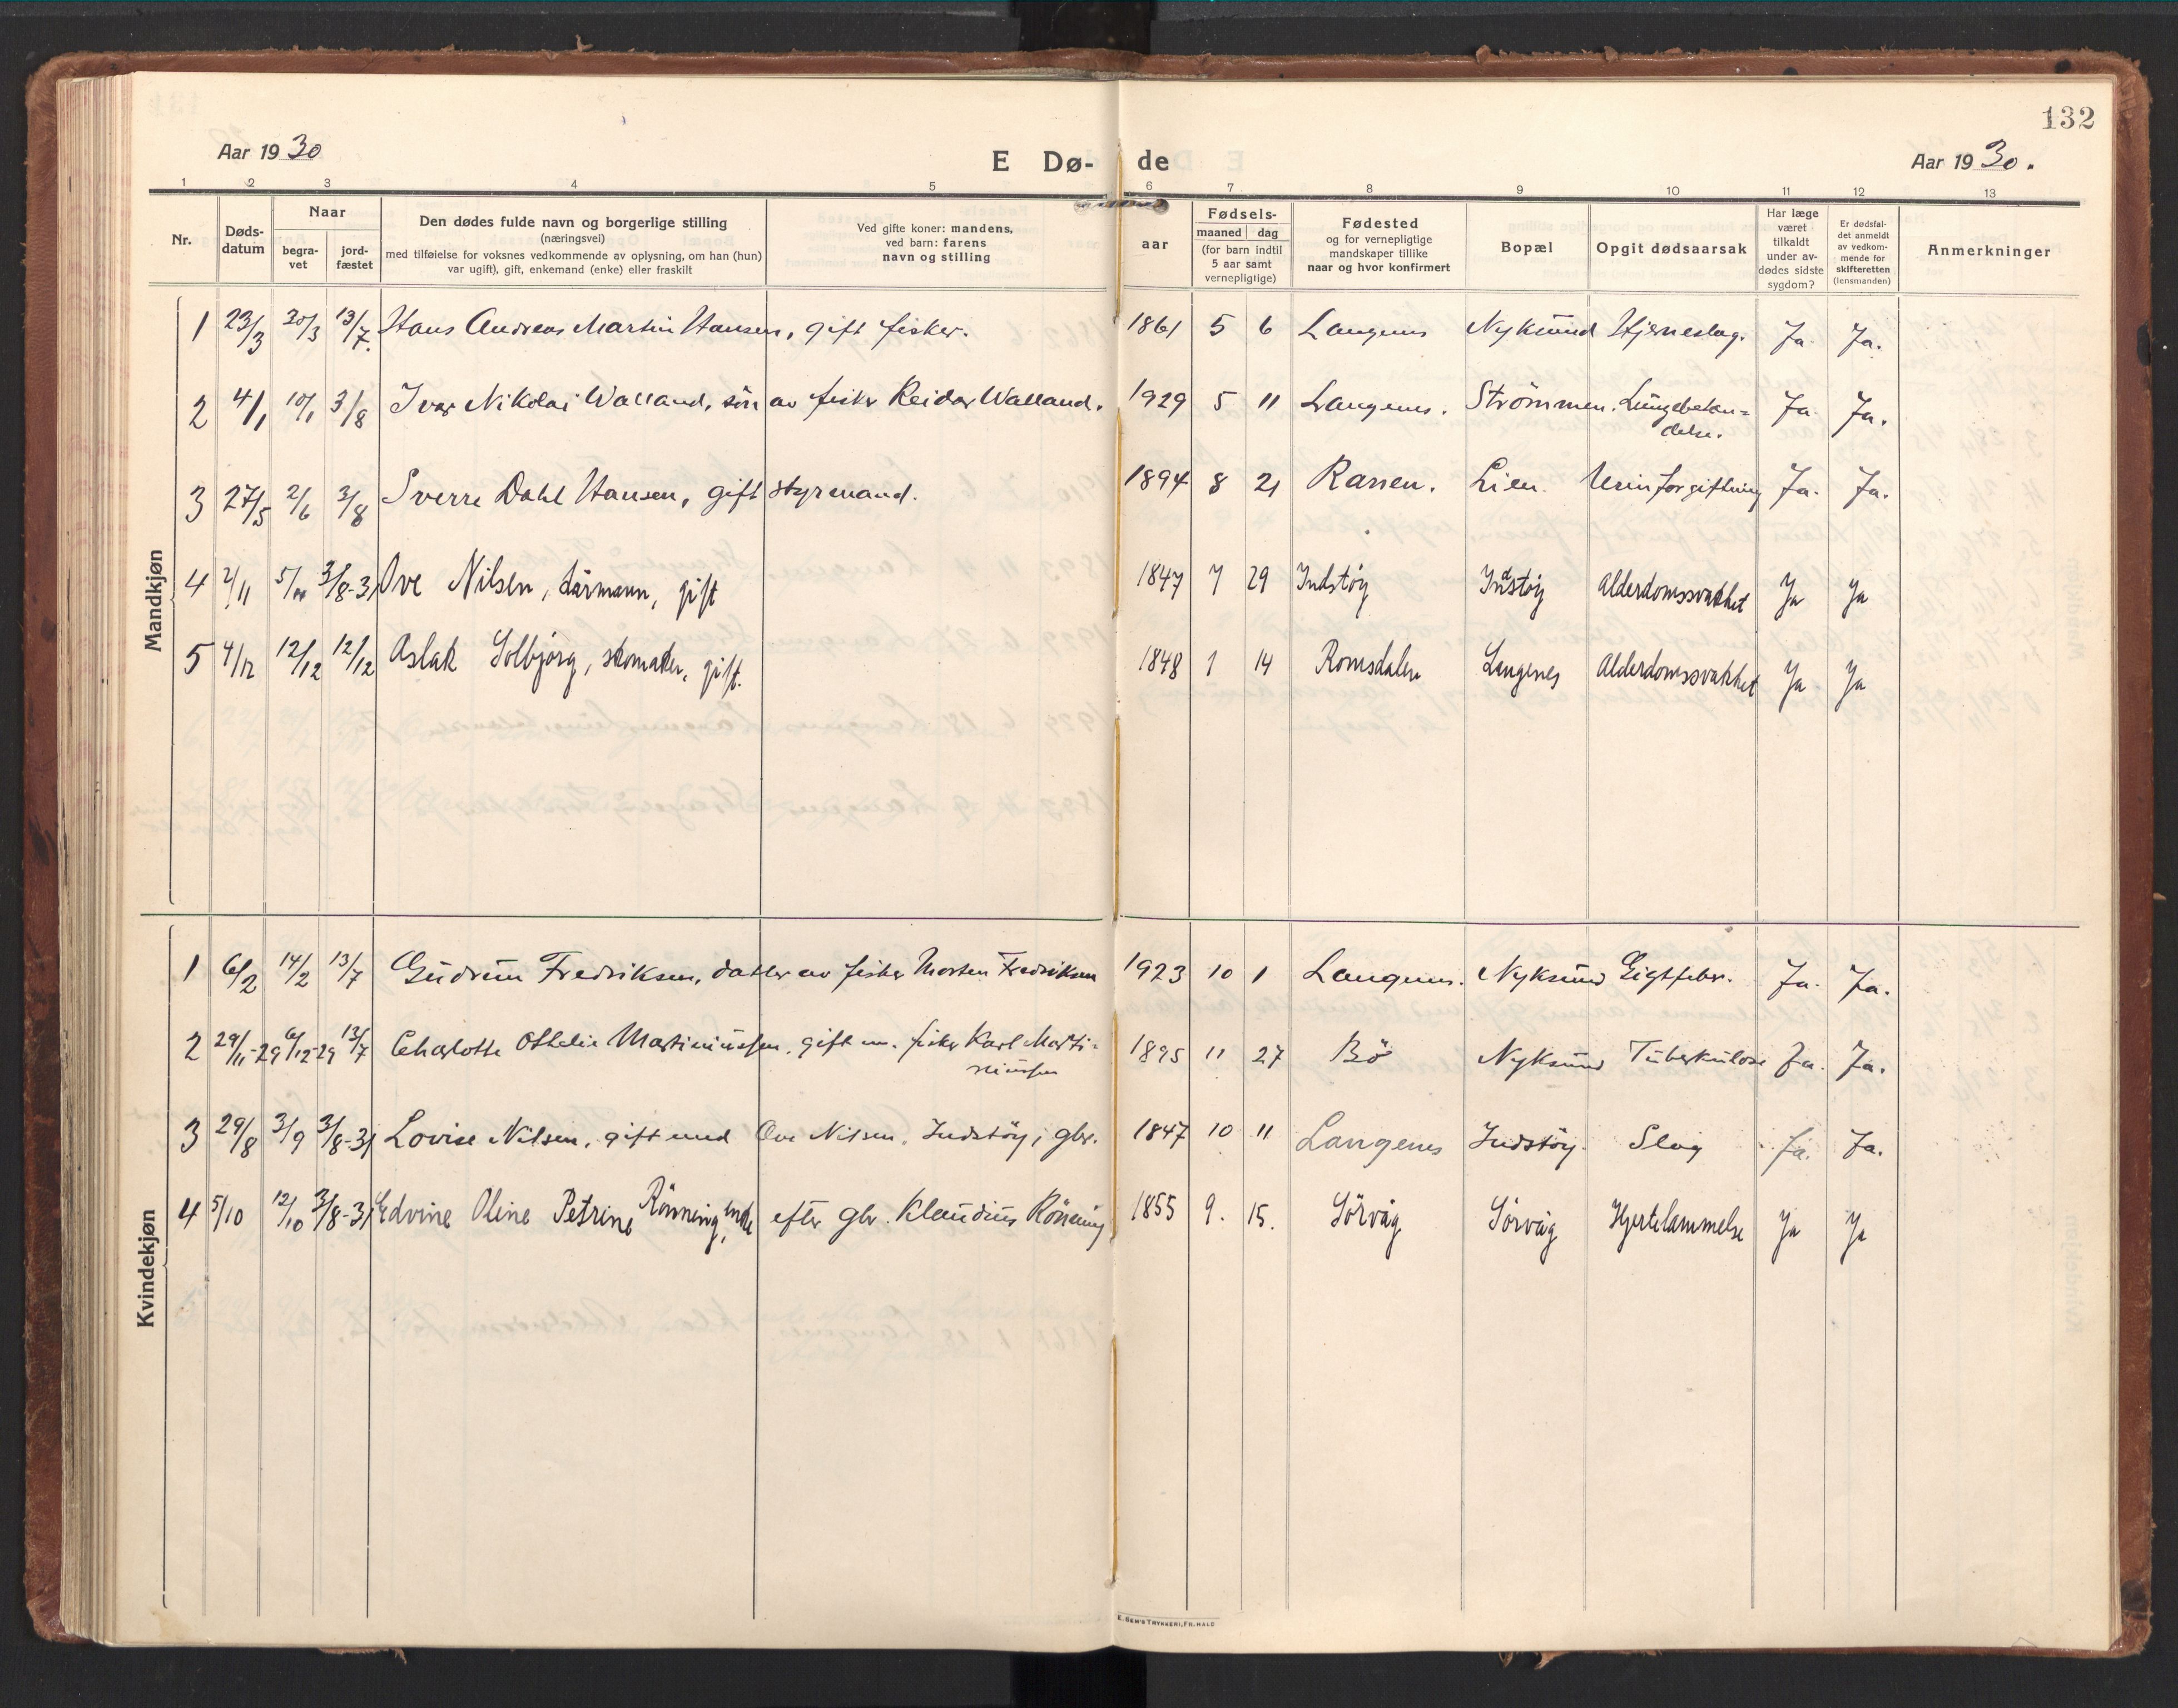 132
Aar 1930
E Dø-de
Aar 1930.
1 2 3 4 5 6 7 8 9 10 11 12 13
Nr.
Døds-
datum
Naar
begra-
vet
jord-
fæstet
Den dødes fulde navn og borgerlige stilling
(næringsvei)
med tilføielse for voksnes vedkommende av oplysning, om han (hun)
var ugift), gift, enkemand (enke) eller fraskilt
Ved gifte koner: mandens,
ved barn: farens
navn og stilling
aar
Fødsels-
maaned dag
(for barn indtil
5 aar samt
vernepligtige)
Fødested
og for vernepligtige
mandskaper tillike
naar og hvor konfirmert
Bopæl
Opgit dødsaarsak
Har læge
været
tilkaldt
under av-
dødes sidste
sygdom?
Er dødsfal-
det anmeldt
av vedkom-
mende for
skifteretten
(lensmanden)
Anmerkninger
Mandkjøn
1 23/3 30/3 13/7. Hans Andreas Martin Hansen, gift fisker. 1861 5 6 Langenes Nyksund Hjerneslag. Ja. Ja.
2 4/1 10/1 3/8 Ivar Nikolai Walland, søn av fisker Reidar Walland. 1929 5 11 Langenes. Strömmen. Lungebeten=
delse. Ja Ja.
3 27/5 2/6 3/8 Sverre Dahl Hansen, gift styrmand. 1894 8 21 Ranen. Lien. Urinforgiftning Ja. Ja.
4 2/11 5/11 3/8-31 Ove Nilsen, kårmann, gift 1847 7 29 Indstöy Indstöy Alderdomssvakhet Ja Ja
5 4/12 12/12 12/12 Aslak Solbjørg, skomaker, gift. 1848 1 14 Romsdalen Langenes Alderdomssvakhet Ja Ja
Kvindekjøn
1 6/2 14/2 13/7 Gudrun Fredriksen, datter av fisker Morten Fredriksen 1923 10 1 Langenes. Nyksund Gigtfeber. Ja. Ja.
2 29/11-29 6/12-29 13/7 Charlotte Othelie Martinussen, gift m. fisker Karl Marti-
nussen 1895 11 27 Bö Nyksund Tuberkulose Ja. Ja.
3 29/8 3/9 3/8-31 Lovise Nilsen, gift med Ove Nilsen, Indstöy, gbr. 1847 10 11 Langenes Indstöy. Slag Ja. Ja.
4 5/10 12/10 3/8-31 Edvine Oline Petrine Rönning, enke efter gbr. Klaudius Rönning 1855 9. 15. Sörvåg Sörvåg Hjertelammelse Ja Ja
E. SEM'S TRYKKERI, FR. HALD